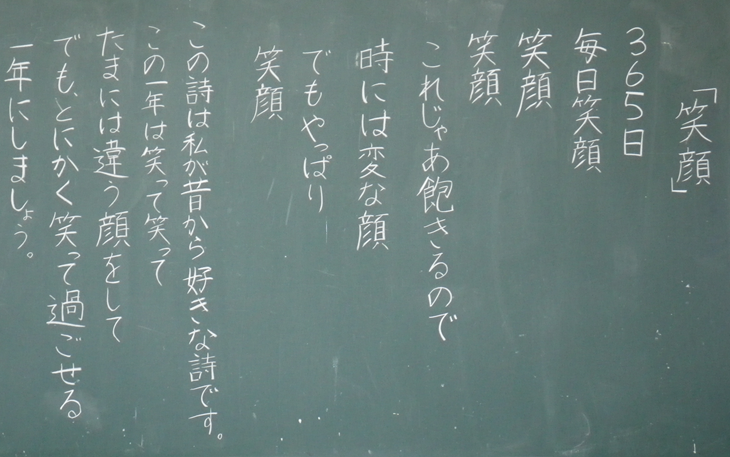 「笑顔」
３６５日
毎日笑顔
笑顔
笑顔
これじゃあ飽きるので
時には変な顔
でもやっぱり
笑顔
この詩は私が昔から好きな詩です。
この一年は笑って笑って
たまには違う顔をして
でも、とにかく笑って過ごせる
一年にしましょう。